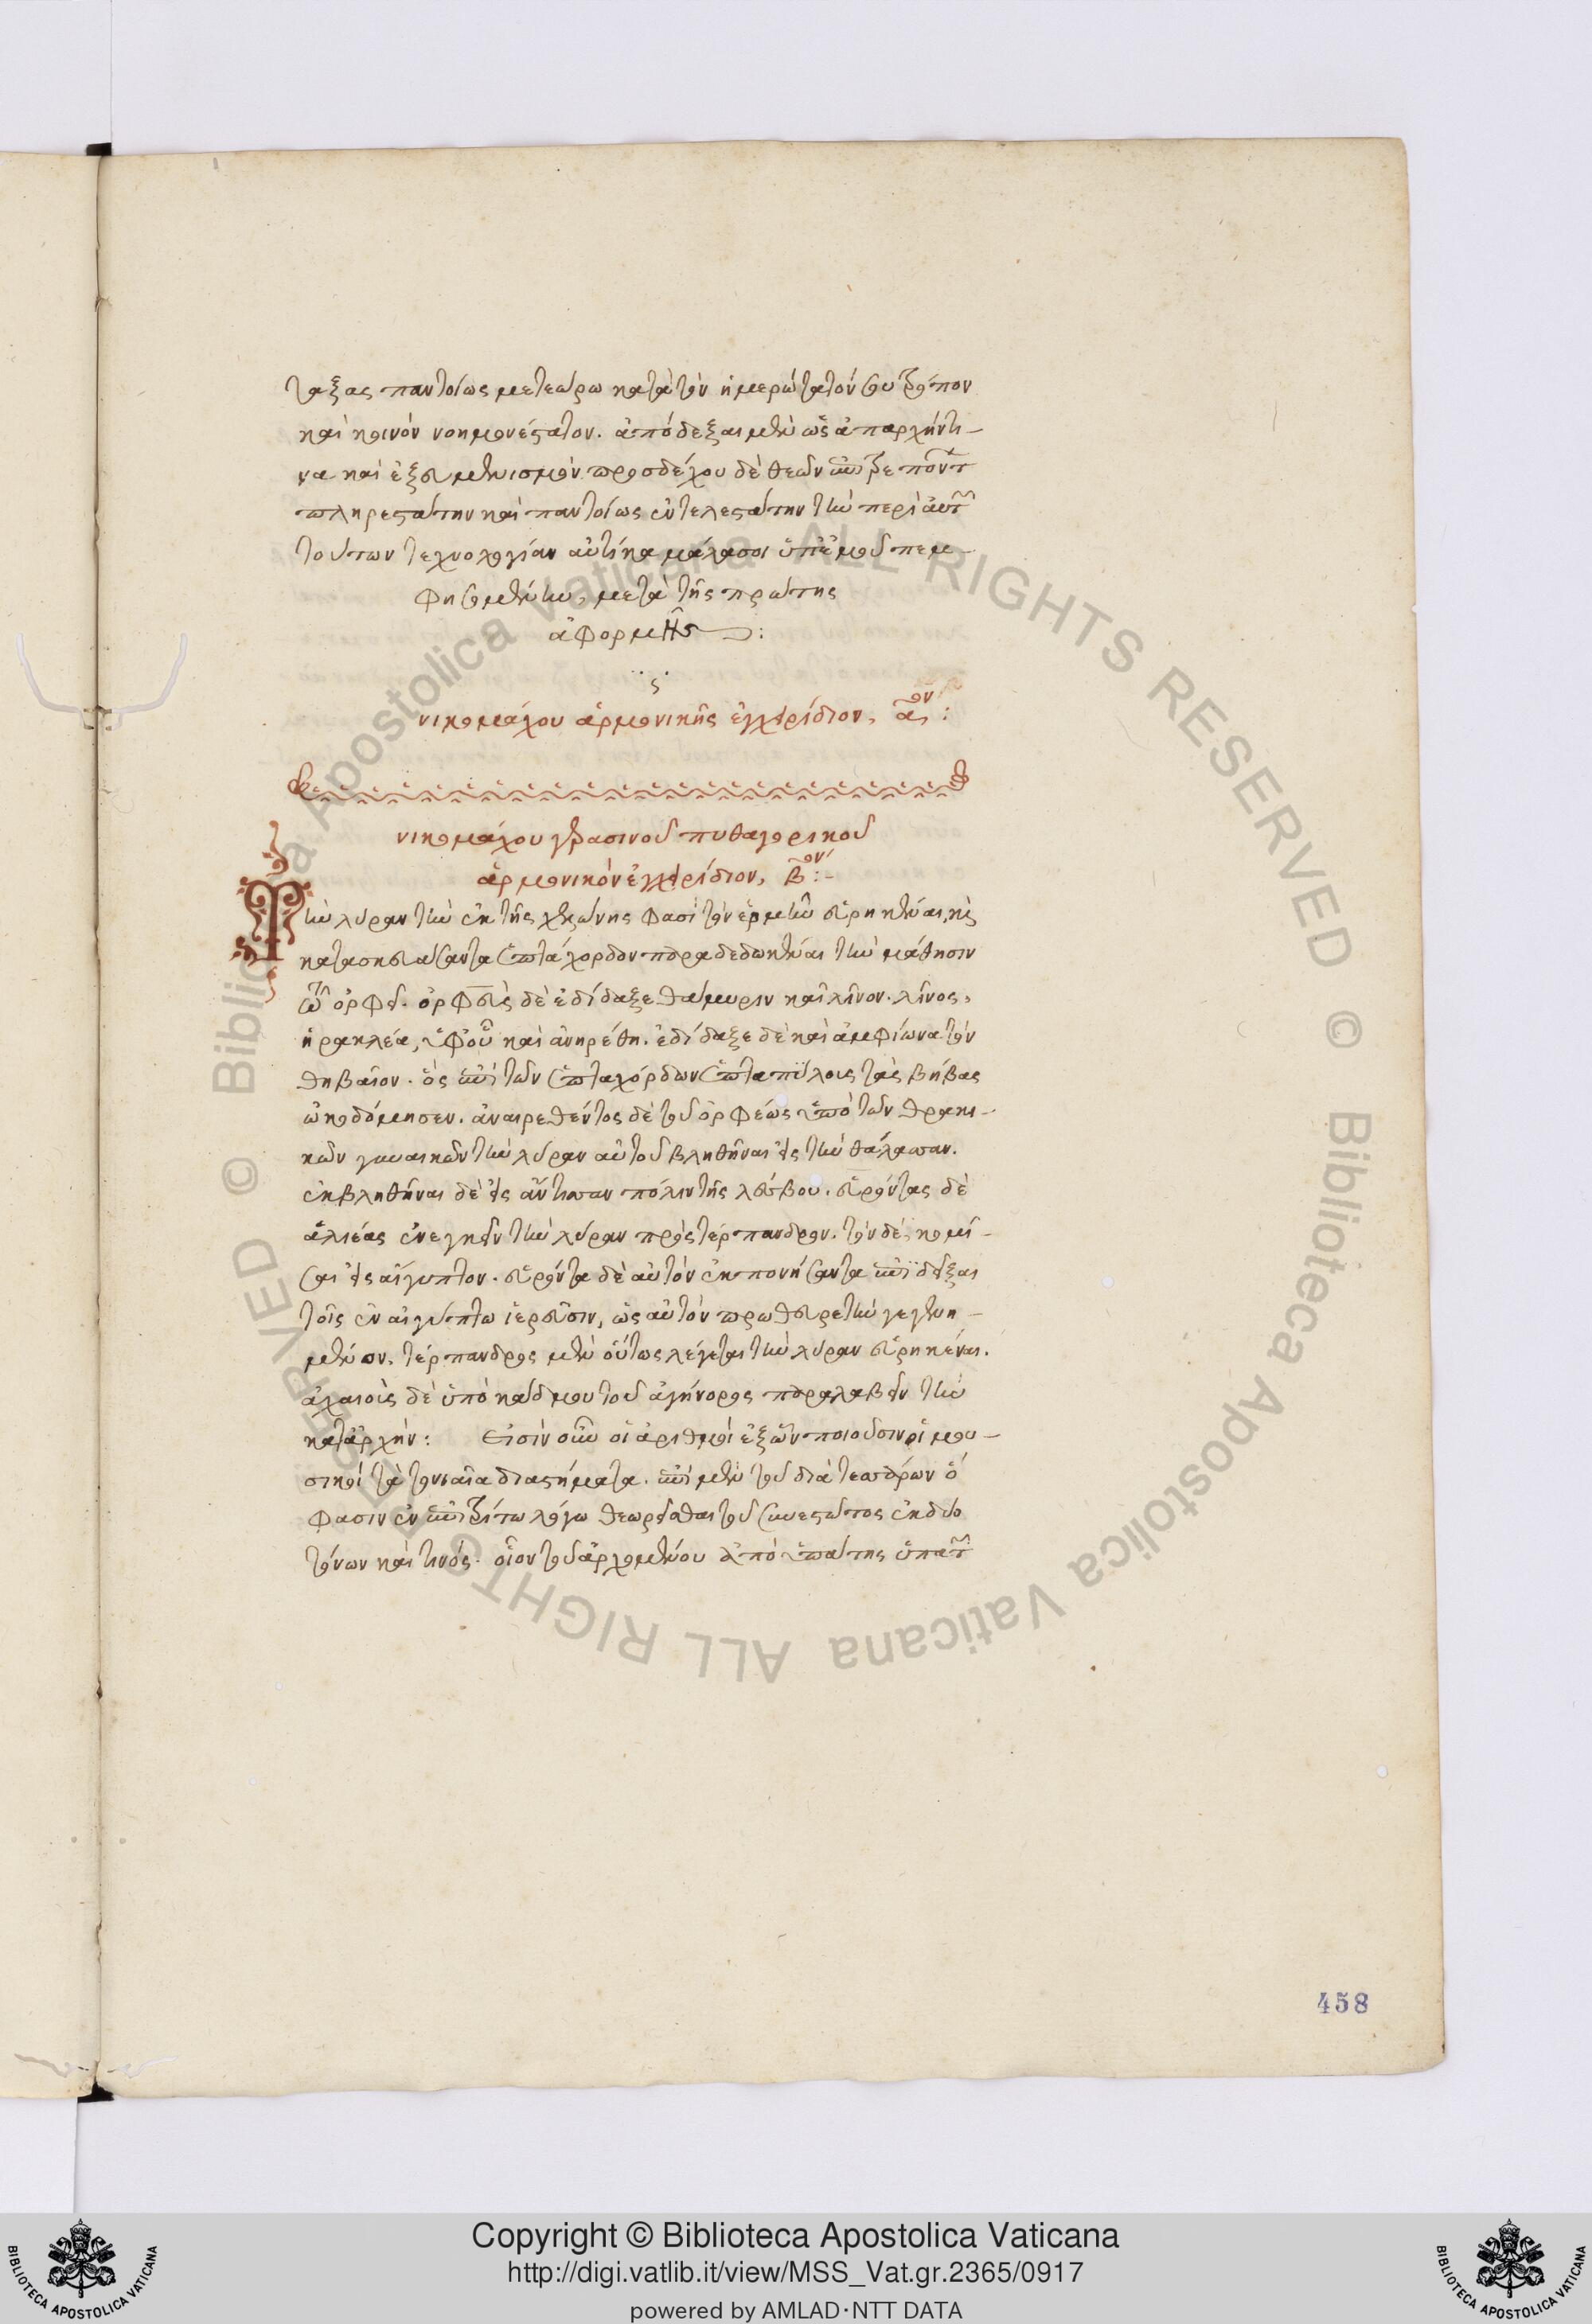 ταξας παντοίως μετεώρω κατὰ τὸν ἡμερώτατόν σου τρόπον
καὶ κοινὸν νοημονέστατον. ἀπόδεξαι μὲν ὡς ἀπαρχήν τι-
να καὶ ἐξευμενισμὸν προσδέχου δὲ θεῶν ἐπιτρεπόντ
πληρεστάτην καὶ παντοίως ἐντελεστάτην τὴν περὶ αὐτ
τούτων τεχνολογίαν αὐτίκα μάλα σοι ὑπ' ἐμοῦ πεμ-
φησομένην, μετὰ τῆς πρώτης
ἀφορμῆς :
ς
νικομάχου ἁρμονικῆς ἐγχειρίδιον, αον :
νικομάχου γερασινοῦ πυθαγορικοῦ
ἁρμονικὸν ἐγχειρίδιον, βον :-
Τὴν λύραν τὴν ἐκ τῆς χελώνης φασὶ τὸν ἑρμῆν εὑρηκέναι, καὶ
κατασκευάσαντα ἑπτάχορδον παραδεδωκέναι τὴν μάθησιν
τῶ ὀρφεῖ. ὀρφεὺς δὲ ἐδίδαξε θάμυριν καὶ λῖνον. λῖνος,
ἡρακλέα, ὑφ' οὗ καὶ ἀνηρέθη. ἐδίδαξε δὲ καὶ ἀμφίωνα τὸν
θηβαῖον. ὃς ἐπὶ τῶν ἑπταχόρδων ἑπταπύλοις τὰς θήβας
ὠκοδόμησεν. ἀναιρεθέντος δὲ τοῦ ὀρφέως ὑπὸ τῶν θρακι-
κῶν γυναικῶν τὴν λύραν αὐτοῦ βληθῆναι εἰς τὴν θάλασσαν.
ἐκβληθῆναι δὲ εἰς ἄντισσαν πόλιν τῆς λέσβου. εὑρόντας δὲ
ἁλιέας ἐνεγκεῖν τὴν λύραν πρὸς τέρπανδρον. τὸν δὲ κομί-
σαι εἰς αἴγυπτον. εὑρόντα δὲ αὐτὸν ἐκπονήσαντα ἐπιδεῖξαι
τοῖς ἐν αἰγύπτω ἱερεῦσιν, ὡς αὐτὸν πρωθευρετὴν γεγενη-
μένον. τέρπανδρος μὲν οὕτως λέγεται τὴν λύραν εὑρηκέναι.
ἀχαιοὺς δὲ ὑπὸ κάδμου τοῦ ἀγήνορος παραλαβεῖν τὴν
κατάρχήν : Εἰσὶν οὖν οἱ ἀριθμοὶ ἐξ ὧν ποιοῦσιν οἱ μου-
σικοὶ τὰ τονιαῖα διαστήματα. ἐπὶ μὲν τοῦ διὰ τεσσάρων ὅ
φασιν ἐν ἐπιτρίτω λόγω θεωρεῖσθαι τοῦ συνεστῶτος ἐκ δύο
τόνων καὶ τινός. οἷον τοῦ ἀρχομένου ἀπὸ ὑπάτης ὑπατ
458
Copyright © Biblioteca Apostolica Vaticana
http://digi.vatlib.it/view/MSS_Vat.gr.2365/0917
powered by AMLAD·NTT DATA